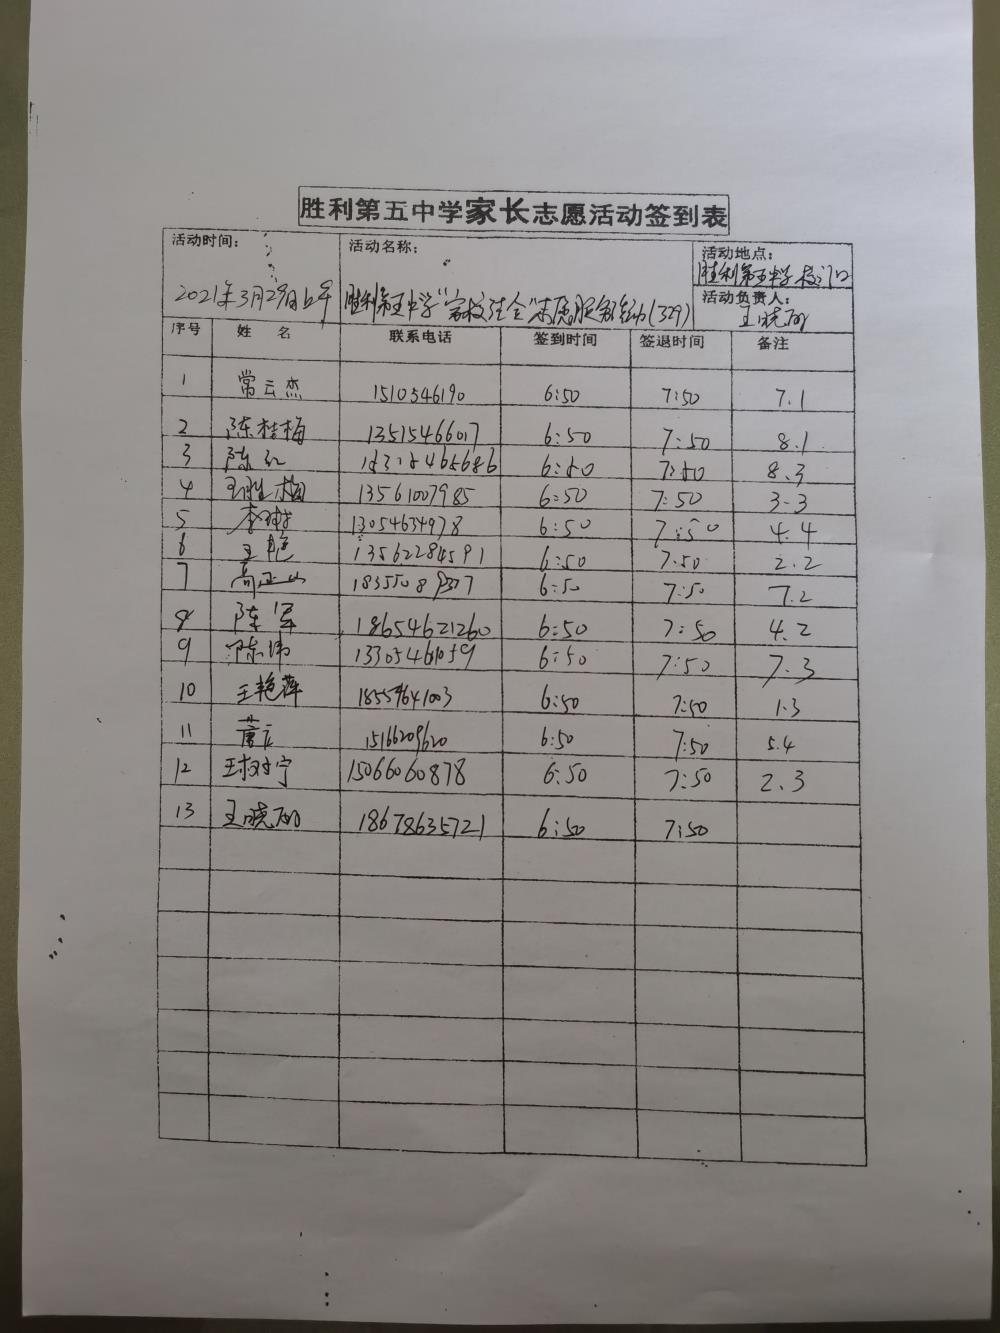 胜利第五中学家长志愿活动签到表
活动时间： 活动名称： 活动地点：
胜利第五中学校门口
2021年3月29日上午 胜利第五中学"家校社会"志愿服务活动(329) 活动负责人：
王晓丽
序号 姓 名 联系电话 签到时间 签退时间 备注
1 常云杰 1510546190 6:50 7:50 7.1
2 陈桂梅 13515466017 6:50 7:50 8.1
3 陈红 6:50 7:50 8.3
4 王胜梅 13561007985 6:50 7:50 3.3
5 13054634978 6:50 7:50 4.4
6 王艳 13562284591 6:50 7:50 2.2
7 高正山 6:50 7:50 7.2
8 陈军 18654621260 6:50 7:50 4.2
9 陈伟 6:50 7:50 7.3
10 王艳萍 6:50 7:50 1.3
11 15166209620 6:50 7:50 5.4
12 15066060878 6:50 7:50 2.3
13 王晓丽 18678635721 6:50 7:50